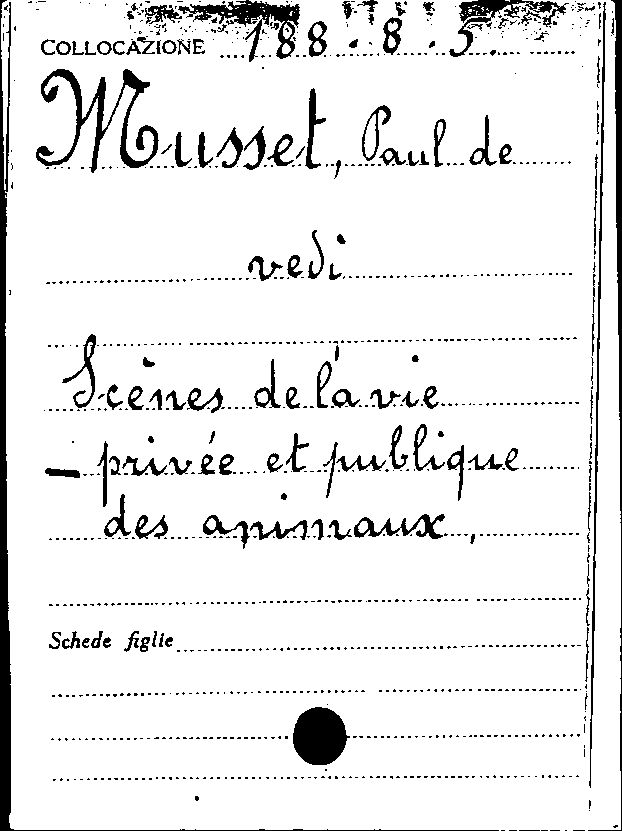 COLLOCAZIONE 188.8.5.
Musset, Paul de
vedi
Scènes de la vie
privée et publique
des animaux,
Schede figlie